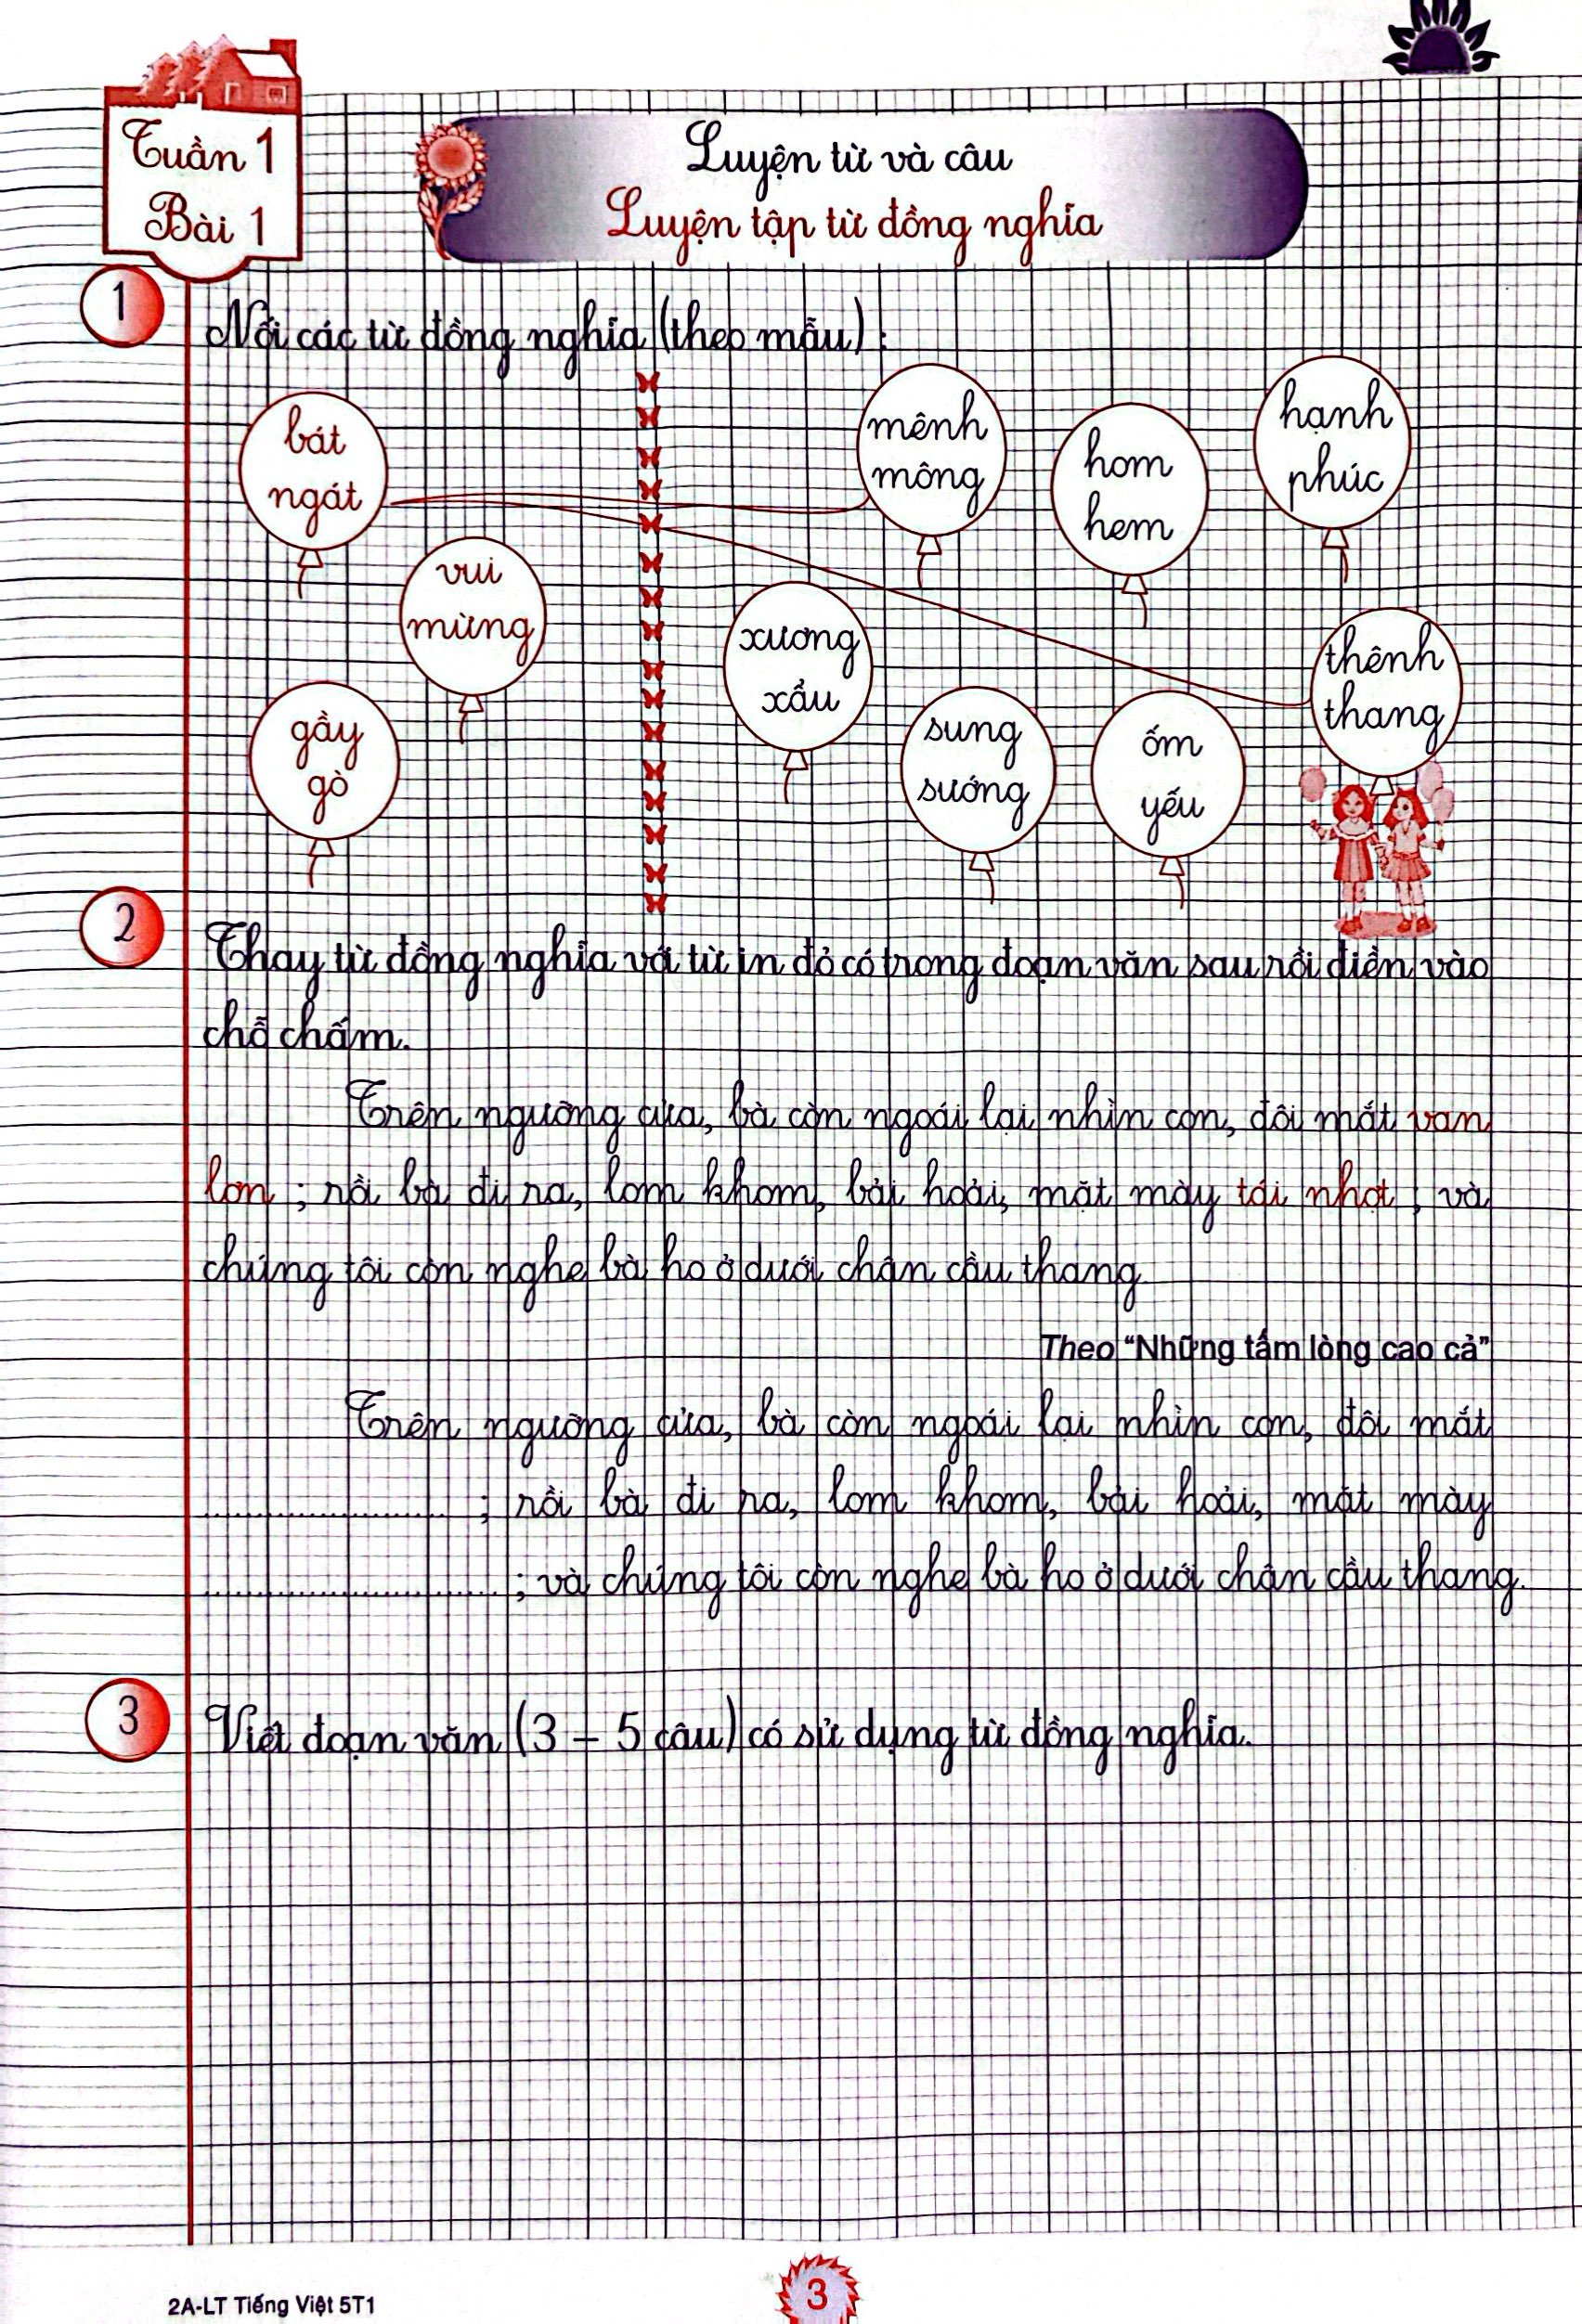 Tuần 1
Bài 1
Luyện từ và câu
Luyện tập từ đồng nghĩa
1
Nối các từ đồng nghĩa (theo mẫu) :
bát
ngát
mênh
mông
hom
hem
hạnh
phúc
vui
mừng
xương
xẩu
thênh
thang
gầy
gò
sung
sướng
ốm
yếu
2
Thay từ đồng nghĩa với từ in đỏ có trong đoạn văn sau rồi điền vào
chỗ chấm.
Trên ngưỡng cửa, bà còn ngoái lại nhìn con, đôi mắt van
lơn ; rồi bà đi ra, lom khom, bải hoải, mặt mày tái nhợt ; và
chúng tôi còn nghe bà ho ở dưới chân cầu thang
Theo “Những tấm lòng cao cả”
Trên ngưỡng cửa, bà còn ngoái lại nhìn con, đôi mắt
........................ ; rồi bà đi ra, lom khom, bải hoải, mặt mày
............................. ; và chúng tôi còn nghe bà ho ở dưới chân cầu thang.
3
Viết đoạn văn (3 – 5 câu) có sử dụng từ đồng nghĩa.
2A-LT Tiếng Việt 5T1
3